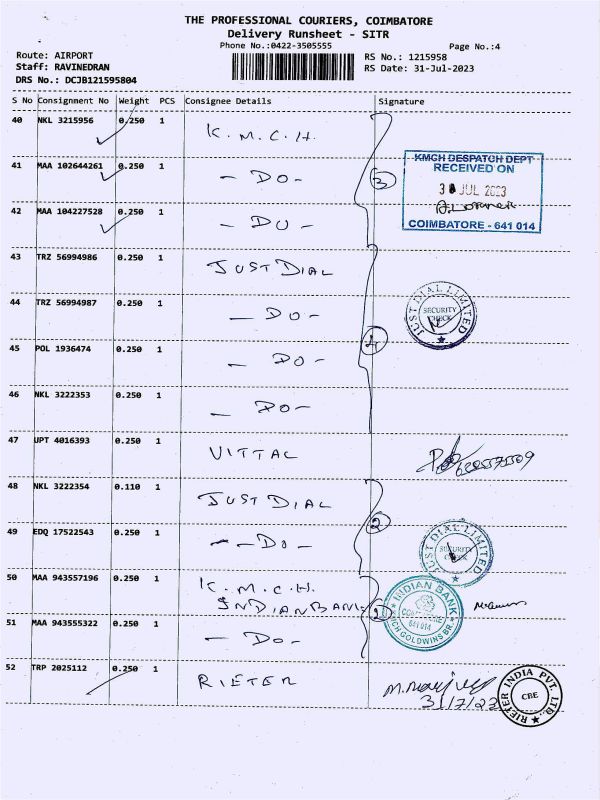 THE PROFESSIONAL COURIERS, COIMBATORE
Delivery Runsheet - SITR
Phone No.:0422-3505555
Page No.:4
Route: AIRPORT
Staff: RAVINEDRAN
DRS No.: DCJB121595804
RS No.: 1215958
RS Date: 31-Jul-2023
S No Consignment No Weight PCS Consignee Details Signature
40 NKL 3215956 0.250 1 K.M.C.H.
41 MAA 102644261 0.250 1 - DO -
42 MAA 104227528 0.250 1 - DO -
3
KMCH DESPATCH DEPT
RECEIVED ON
JUL 2023
COIMBATORE - 641 014
43 TRZ 56994986 0.250 1 JUST DIAL
44 TRZ 56994987 0.250 1 - DO -
45 POL 1936474 0.250 1 - DO -
46 NKL 3223353 0.250 1 - DO -
4
JUST DIAL LIMITED
SECURITY
CHECK
47 UPT 4016393 0.250 1 VITTAL
48 NKL 3222354 0.110 1 JUST DIAL
49 EDQ 17522543 0.250 1 - DO -
2
JUST DIAL LIMITED
SECURITY
CHECK
50 MAA 943557196 0.250 1 K.M.C.H.
INDIAN BANK
51 MAA 943555322 0.250 1 - DO -
INDIAN BANK
641 014
KMCH GOLDWINS BR.
52 TRP 2025112 0.250 1 RIETER
31/7/23
RIETER INDIA PVT. LTD.
CBE